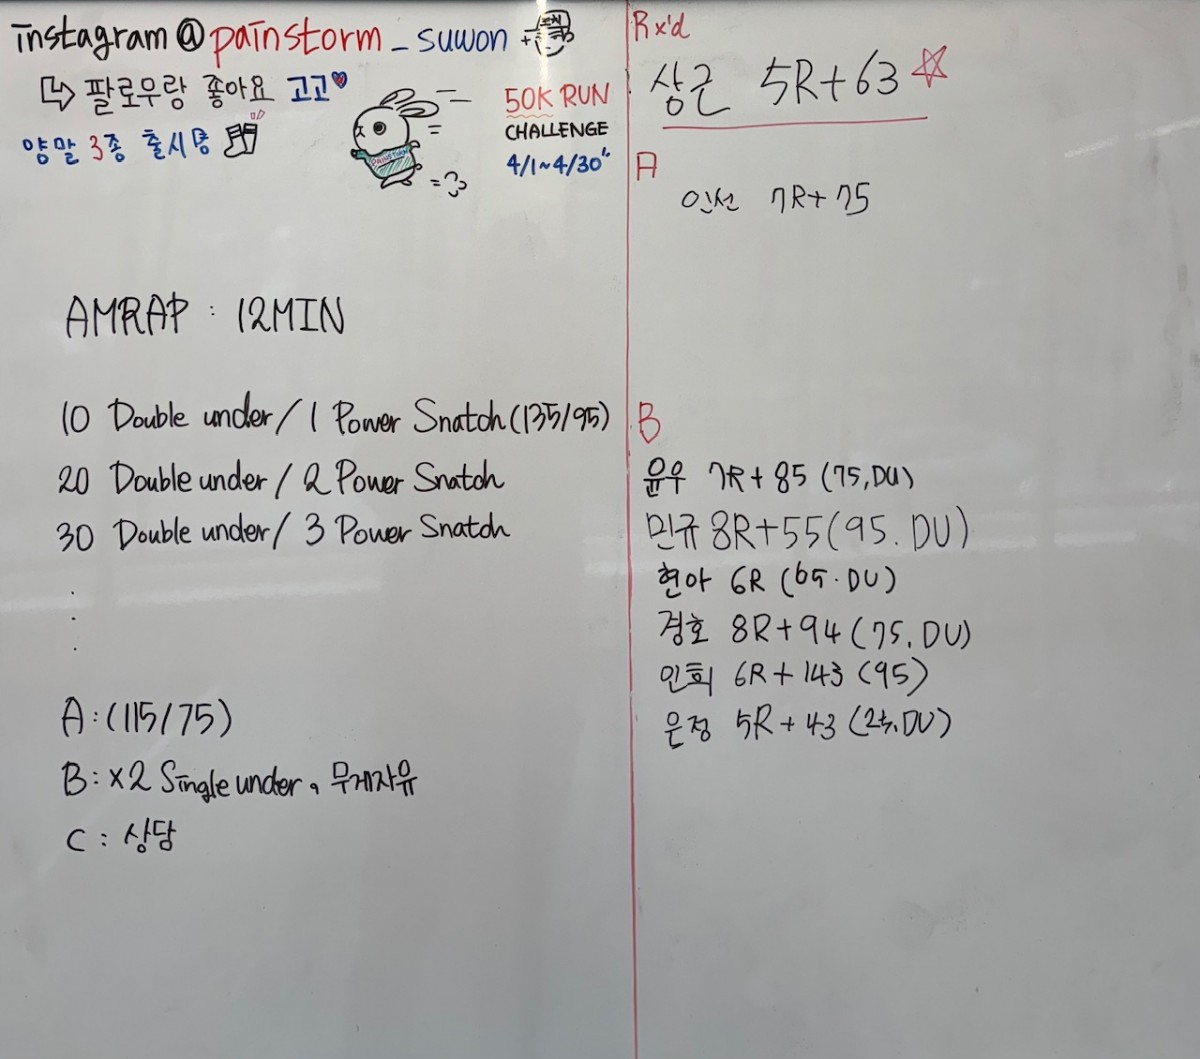 instagram@painstorm_suwon +
팔로우랑 좋아요 고고
양말 3종 출시됨
50K RUN
CHALLENGE
4/1~4/30"
PAINSTORM
AMRAP : 12MIN
10 Double under / 1 Power Snatch (135/95)
20 Double under / 2 Power Snatch
30 Double under / 3 Power Snatch
.
.
.
A : (115/75)
B : x2 Single under, 무게자유
C : 상담
Rx'd
상근 5R+63
A
인선 7R+75
B
윤우 7R+85 (75, DU)
민규 8R+55 (95. DU)
현아 6R (65. DU)
경호 8R+94 (75. DU)
인희 6R+143 (95)
은정 5R+43 (25. DU)